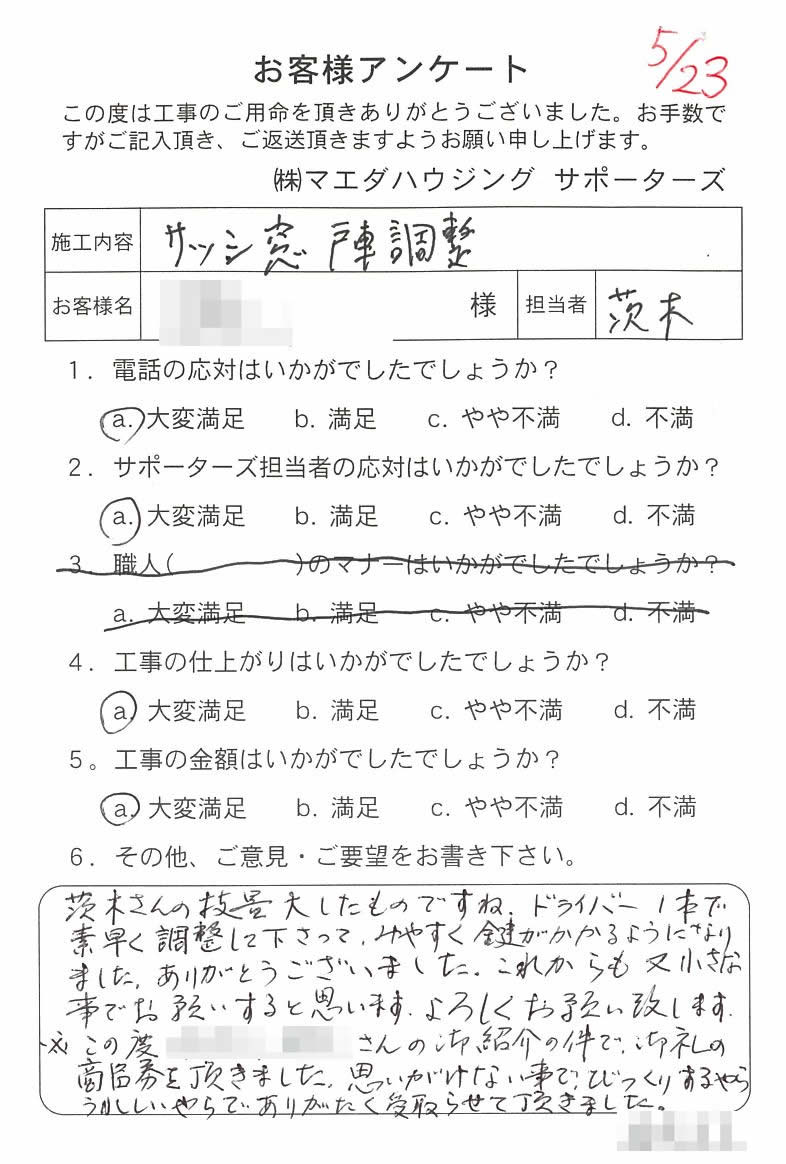 5/23
お客様アンケート
この度は工事のご用命を頂きありがとうございました。お手数で
すがご記入頂き、ご返送頂きますようお願い申し上げます。
㈱マエダハウジング サポーターズ
施工内容 サッシ窓 戸車調整
お客様名 様 担当者 茨木
1. 電話の応対はいかがでしたでしょうか？
a. 大変満足 b. 満足 c. やや不満 d. 不満
2. サポーターズ担当者の応対はいかがでしたでしょうか？
a. 大変満足 b. 満足 c. やや不満 d. 不満
3. 職人( )のマナーはいかがでしたでしょうか？
a. 大変満足 b. 満足 c. やや不満 d. 不満
4. 工事の仕上がりはいかがでしたでしょうか？
a. 大変満足 b. 満足 c. やや不満 d. 不満
5。工事の金額はいかがでしたでしょうか？
a. 大変満足 b. 満足 c. やや不満 d. 不満
6. その他、ご意見・ご要望をお書き下さい。
茨木さんの技量大したものですね。ドライバー1本で
素早く調整して下さって、みやすく鍵がかかるようになり
ました。ありがとうございました。これからも又小さな
事でお願いすると思います。よろしくお願い致します。
この度 さんの御紹介の件で、御礼の
商品券を頂きました。思いがけない事で、びっくりするやら
うれしいやらでありがたく受取らせて頂きました。